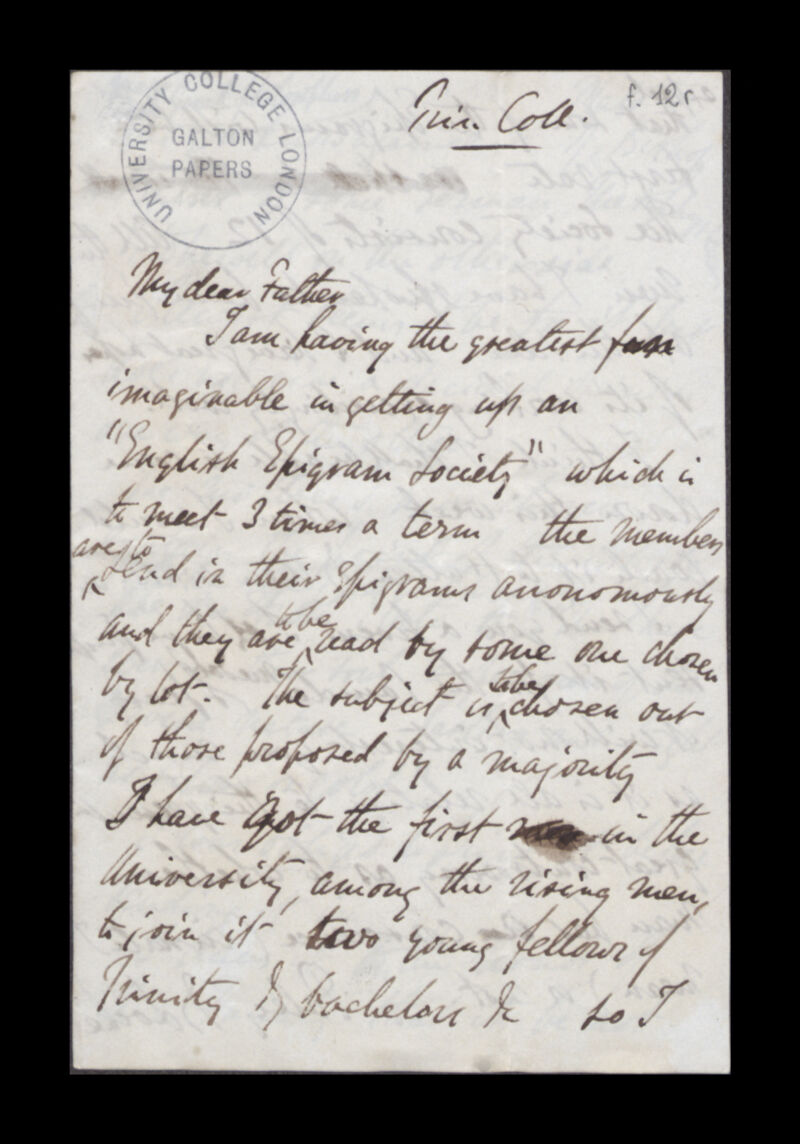 f. 12r
UNIVERSITY COLLEGE LONDON
GALTON
PAPERS
Trin. Coll.
My dear Father
I am having the greatest fun
imaginable in getting up an
"English Epigram Society" which is
to meet 3 times a term the members
are to
send in their Epigrams anonomously
and they are to be read by some one chosen
by lot. The subject is to be chosen out
of those proposed by a majority
I have got the first in the
University, among the rising men,
to join it two young fellows of
Trinity &c so I